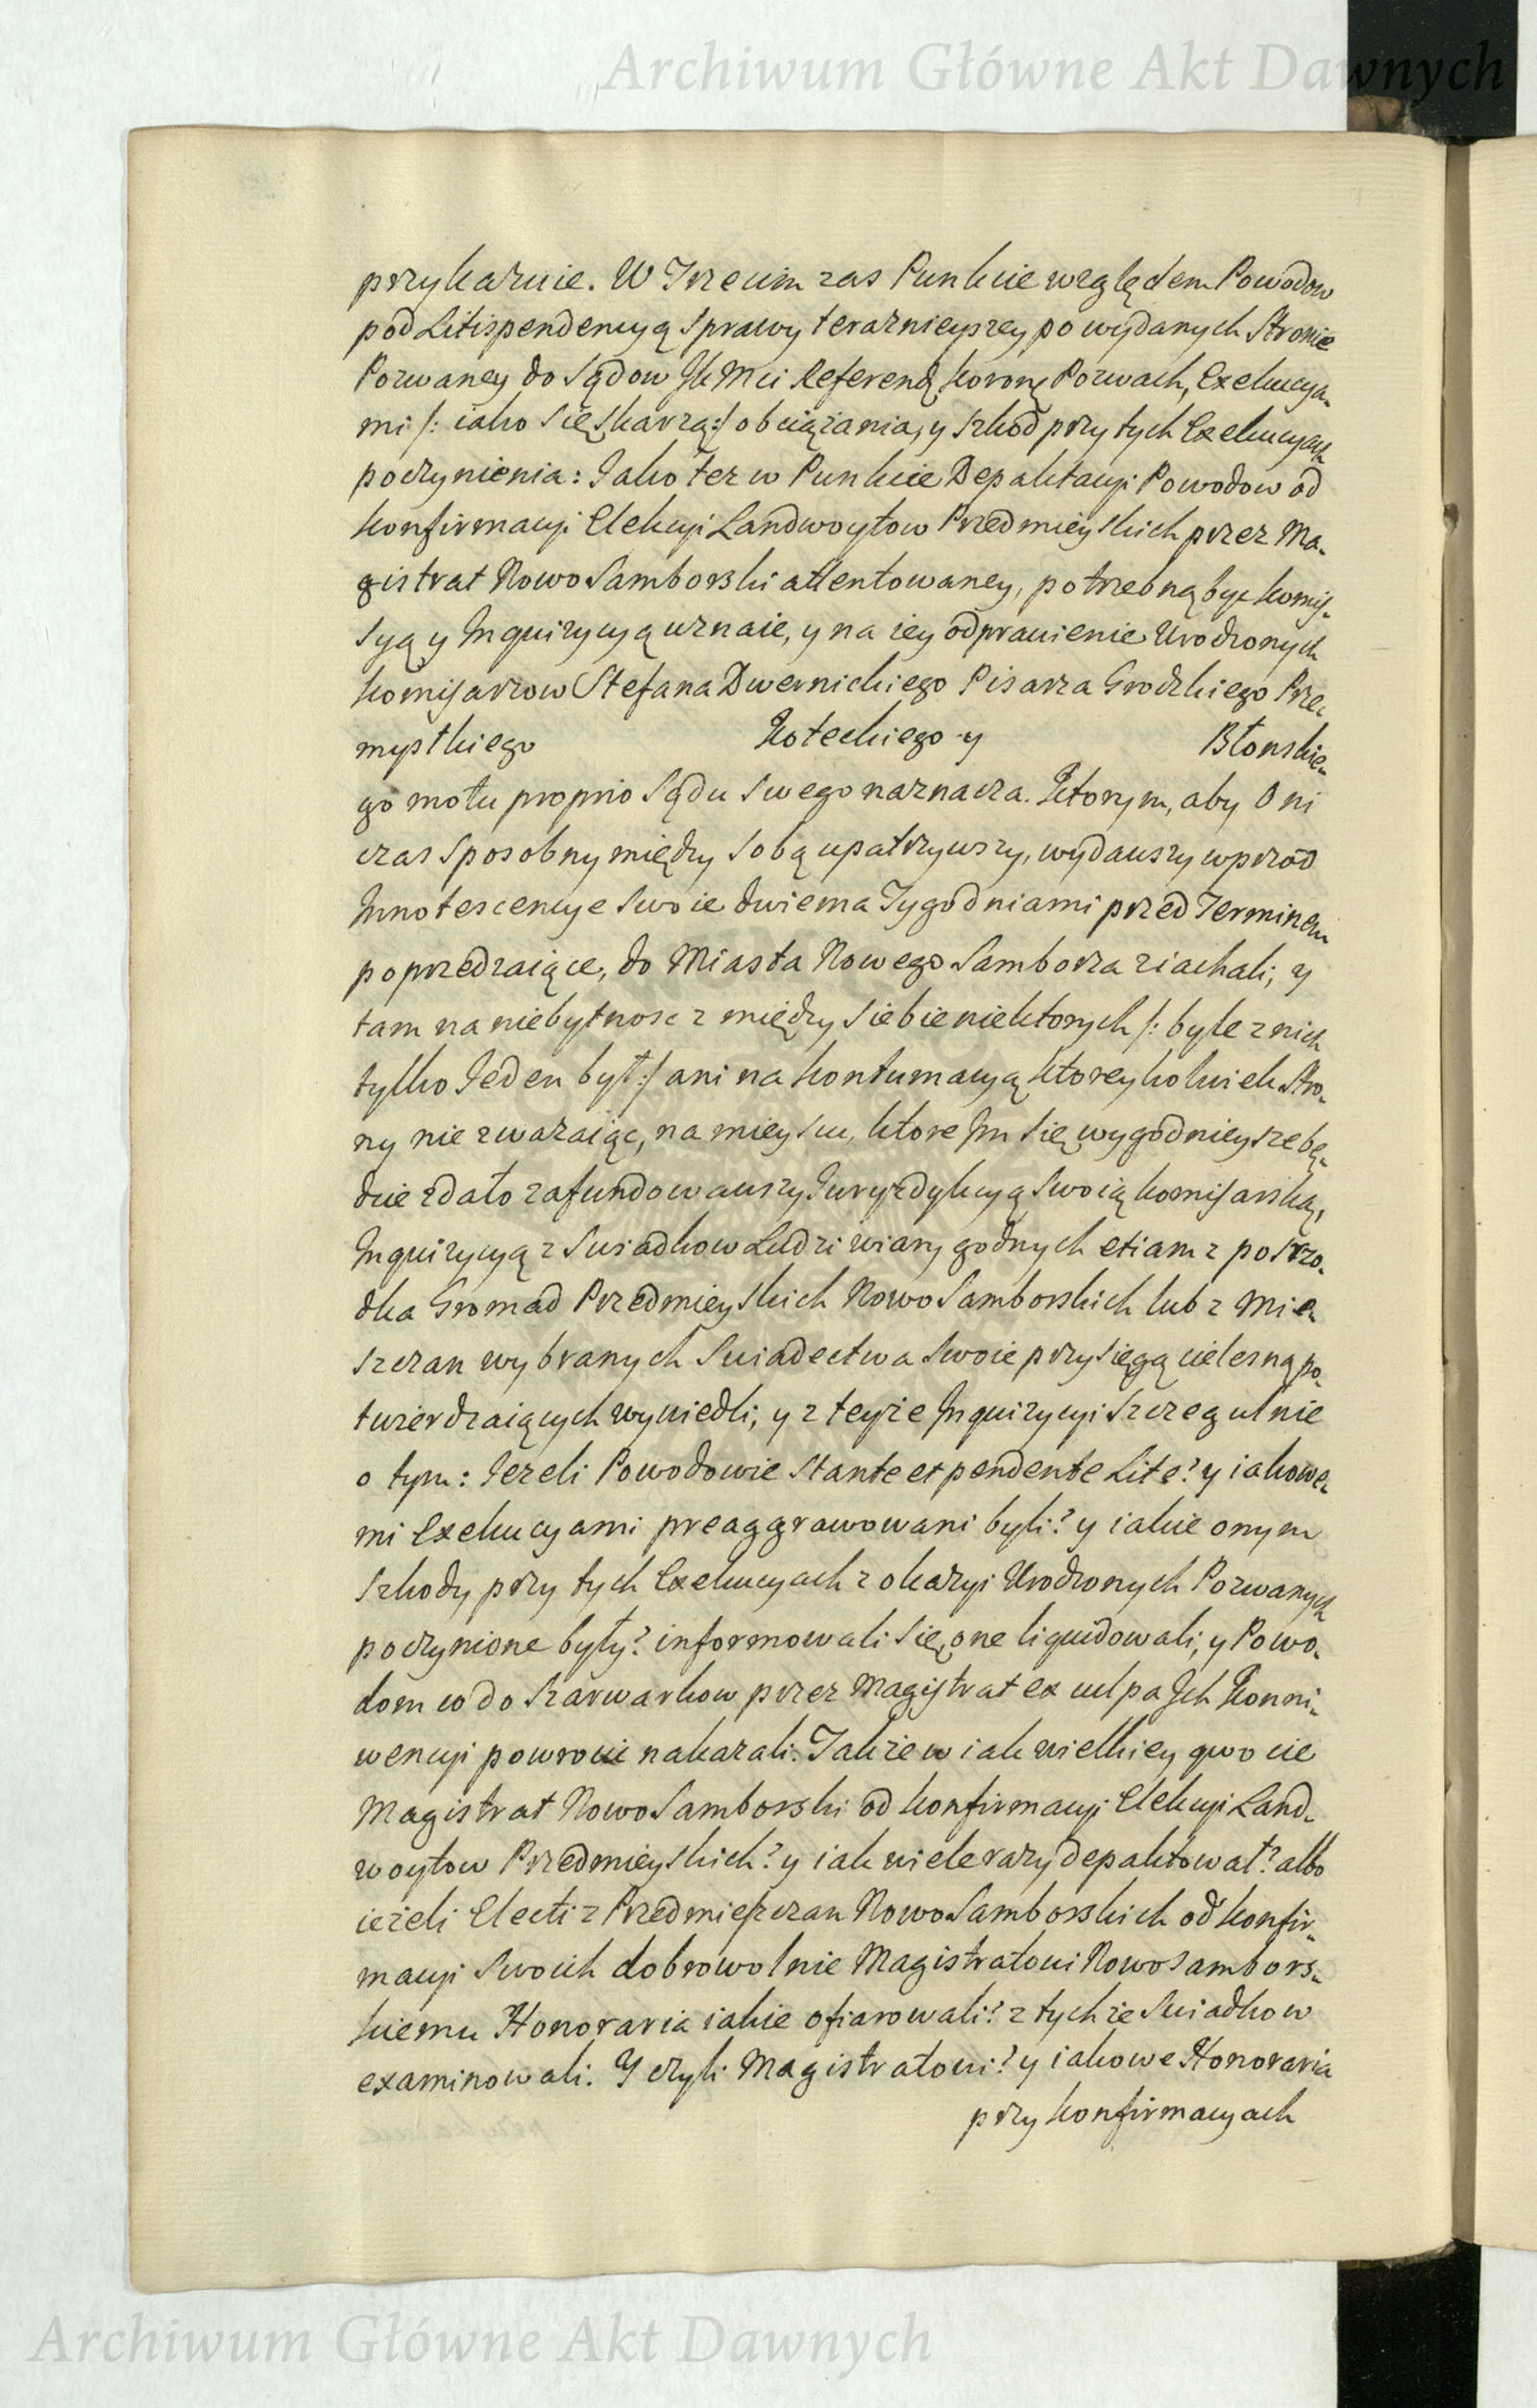 Archiwum Główne Akt Dawnych
przykaznie. W Trzecim zas Punkcie względem Powodow
pod Litispendencyą Sprawy teraznieyszey po wydanych Stronie
Pozwaney do Sądow JK Mci Referend. Koronę Pozwach, Exekucya-
mi /: iako się skarzą :/ obciążania, y szkod przy tych Exekucyach
poczynienia: Jako tez w Punkcie Depaktacyi Powodow od
Konfirmacyi Elekcyi Landwoytow Przedmieyskich przez Ma-
gistrat Nowo Samborski attentowaney, potrzebną być Komis-
syą y Inquizycyą uznaie, y na iey odprawienie Urodzonych
Komisarzow Stefana Dwernickiego Pisarza Grodzkiego Prze-
myslkiego Koteckiego y Błonskie-
go motu proprio Sądu Swego naznacza. Ktorym, aby Oni
czas Sposobny między Sobą upatrzywszy, wydawszy wprzod
Innotescencye Swoie dwiema Tygodniami przed Terminem
poprzedzaiące, do Miasta Nowego Samborza ziachali, y
tam na niebytnosc z między Siebie niektorych /: byle z nich
tylko Jeden był :/ ani na Kontumacyą ktoreykolwiek Stro-
ny nie zwazaiąc, na mieyscu, ktore Im się wygodnieysze bę-
dzie zdało zafundowawszy Juryzdykcyą Swoią Komisarską,
Inquizycyą z Swiadkow Ludzi wiary godnych etiam z posrzo-
dka Gromad Przedmieyskich Nowo Samborskich lub z Mie-
szczan wybranych Swiadectwa Swoie przysięgą cielesną po-
twierdzaiących wywiedli, y z teyże Inquizycyi Szczegulnie
o tym: Jezeli Powodowie Stante et pendente Lite? y iakowe-
mi Exekucyami preaggrawowani byli? y iakie onym
Szkody przy tych Exekucyach z okazyi Urodzonych Pozwanych
poczynione były? informowali się, one liquidowali, y Powo-
dom co do Szarwarkow przez Magistrat ex culpa Jch Konni-
wencyi powrocić nakazali. Takze w iak wielkiey qwocie
Magistrat Nowo Samborski od Konfirmacyi Elekcyi Land-
woytow Przedmieyskich? y iak wiele razy depaktował? albo
ieżeli Electi z Przedmieszczan Nowo Samborskich od Konfir-
macyi Swoich dobrowolnie Magistratowi Nowo Sambors-
kiemu Honoraria iakie ofiarowali? z tychże Swiadkow
examinowali. Y czyli Magistratowi? y iakowe Honoraria
przy Konfirmacyach
Archiwum Główne Akt Dawnych